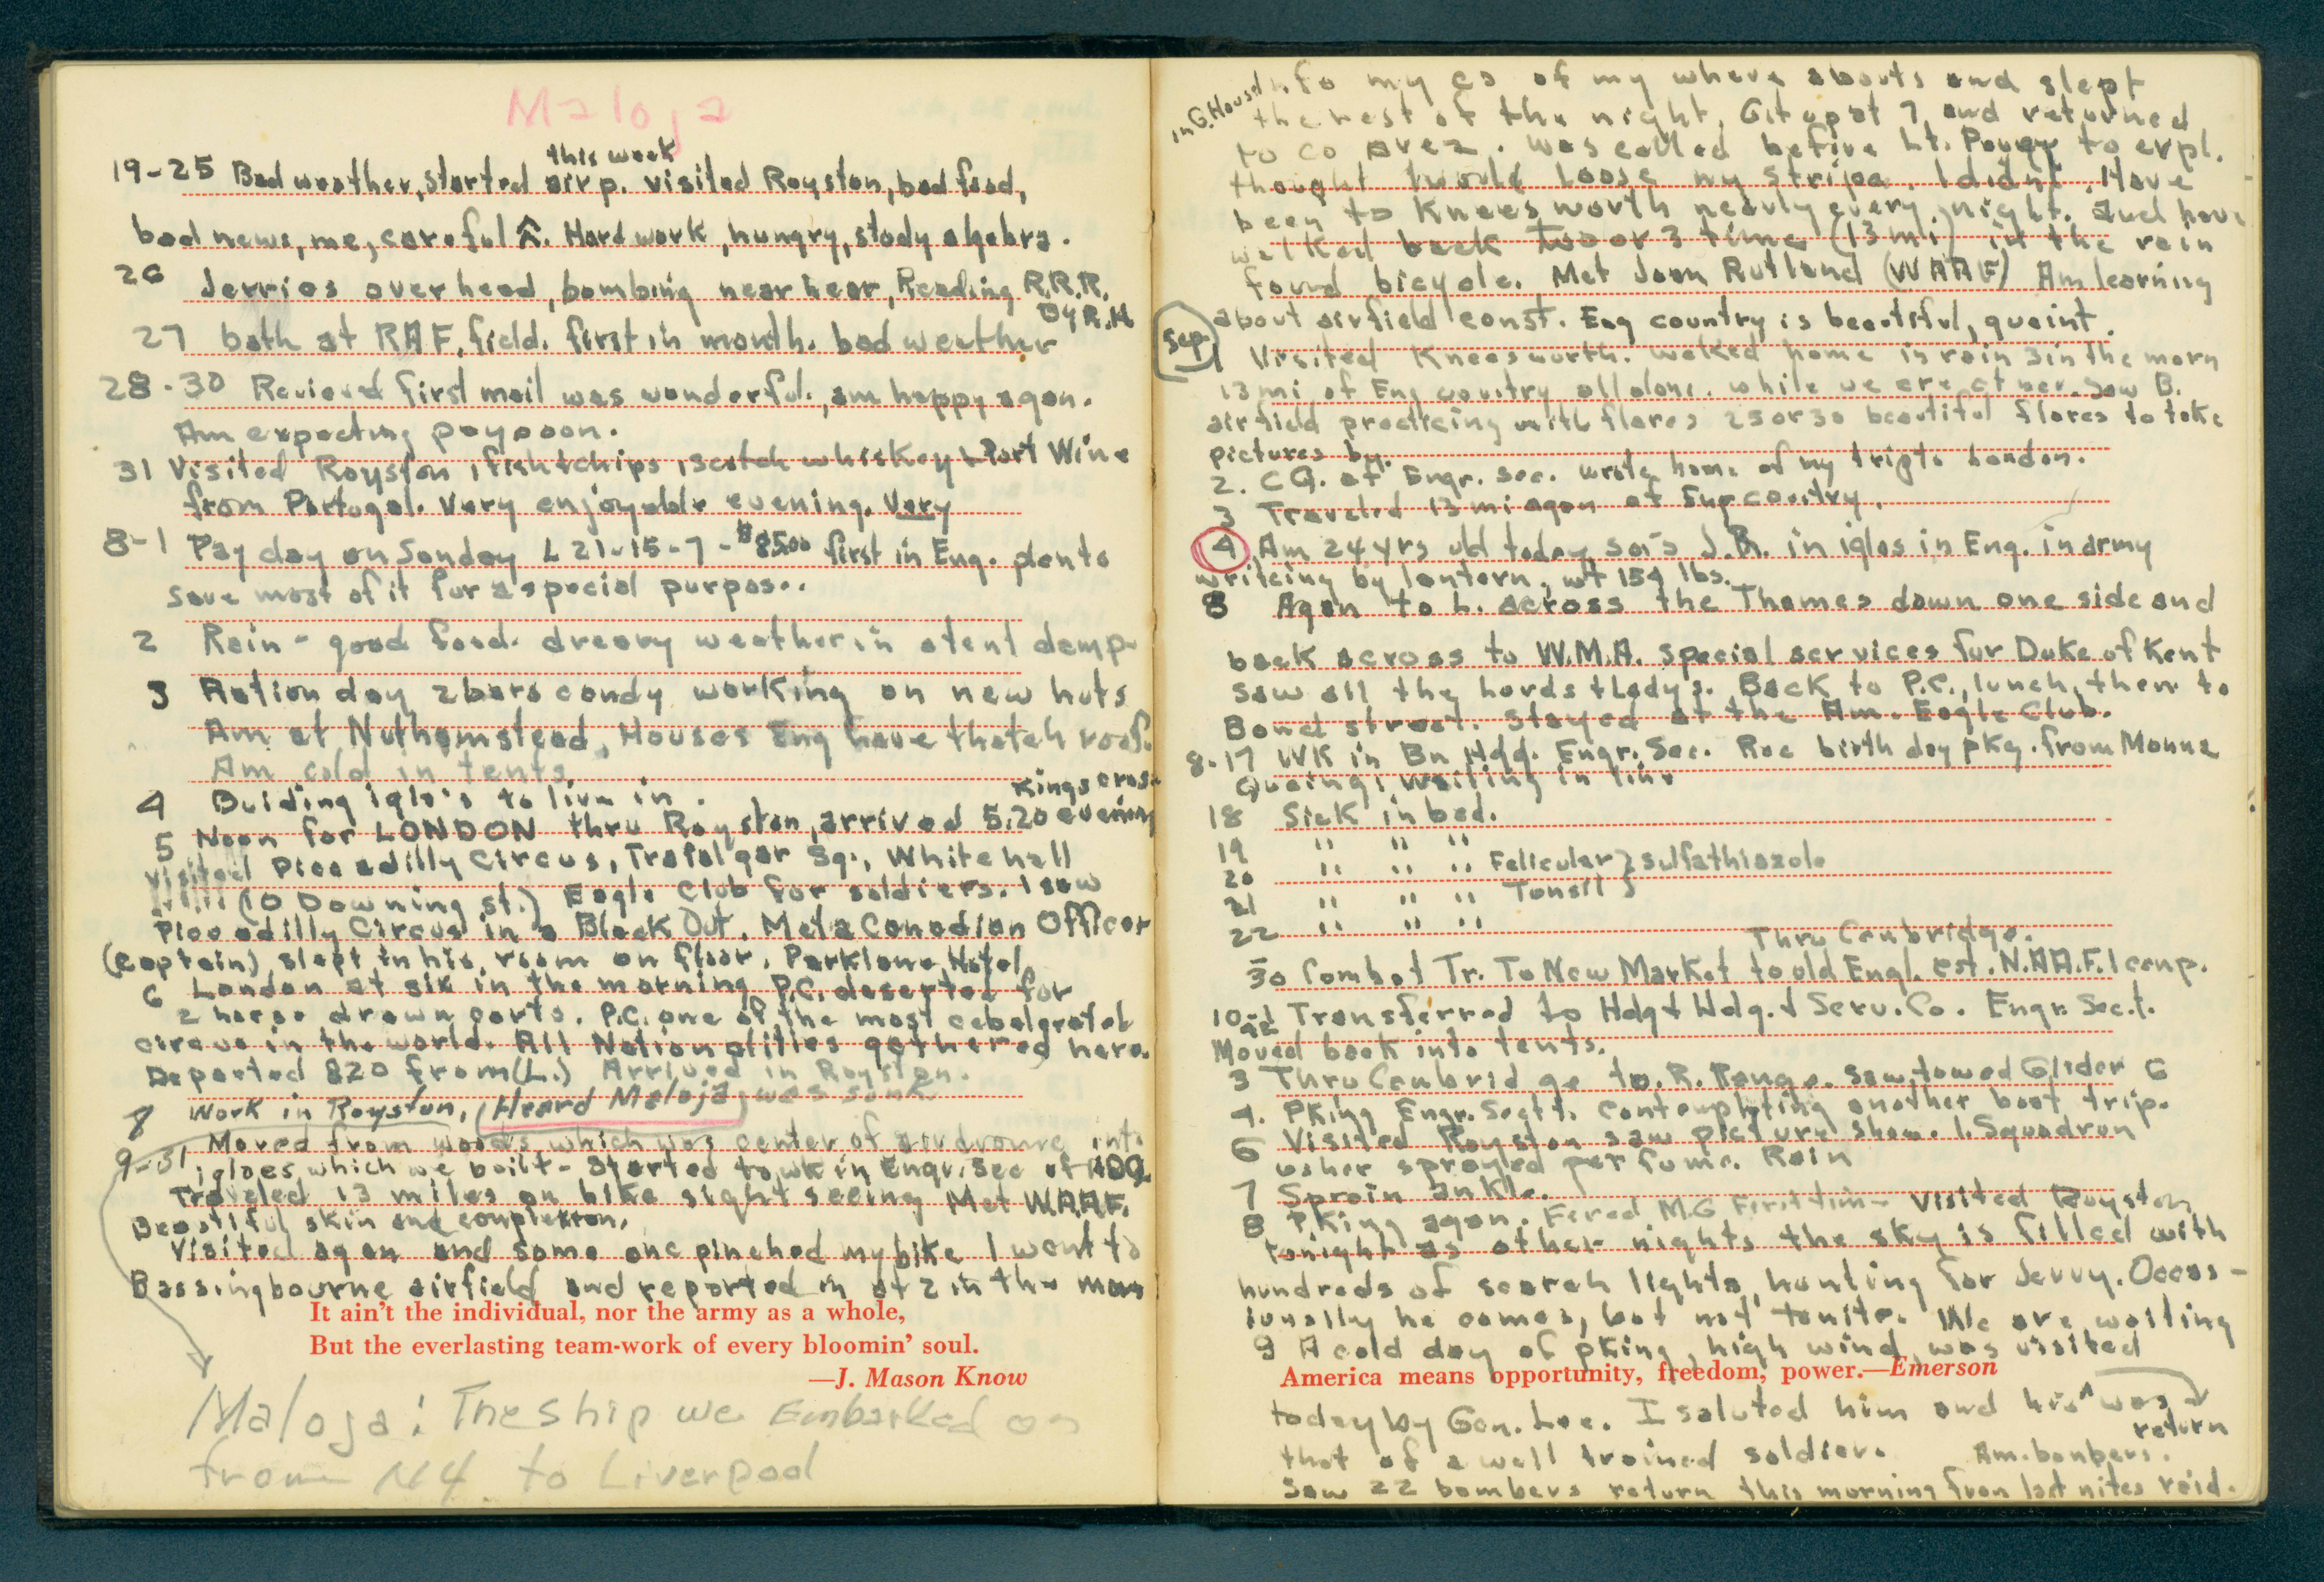 Maloja
this week
19-25 Bad weather, started airp. visited Royston, bad food,
bad news, me, careful Hard work, hungry, study algebra.
26 Jerries over head, bombing near hear, Reading R.R.R.
By R.H
27 bath at RAF. field. first in month. bad weather
28-30 Recieved first mail was wonderful., am happy agan.
Am expecting pay soon.
31 Visited Royston, fish + chips, scotch whiskey + Port Wine
from Portugal. Very enjoyable evening. Very
8-1 Pay day on Sonday L 21-15-7 - $85.00 first in Eng. plan to
Save most of it for a special purpos..
2 Rain - good food. dreary weather in a tent damp
3 Ration day 2 bars candy working on new huts
Am at Nuthamstead, Houses Eng have thatch roof.
Am cold in tents
4 Buiding iglo's to live in.
Kings cross
5 Noon for LONDON thru Royston, arrived 5:20 evening
Visited Piccadilly Circus, Trafalgar Sq., White hall
(10 Downing st.) Eagle Club for soldiers. I saw
Piccadilly Circus in a Black Out. Met a Canadian Officer
(Captain) slept in his room on floor. Parklane Hotel
6 London at six in the morning P.C. deserted for
2 horse drawn carts. P.C. one of the most
circus in the world. All Nationalities gathered here.
Departed 820 from (L.) Arrived in Royston.
8 Work in Royston, (Heard Maloja) was sunk
9-31 Moved from woods which was center of airdrome into
igloes, which we built - Started to wk in Engr. Sec of HDQ
Traveled 13 miles on bike sight seeing Met W.A.A.F.
Beautiful skin and complexion.
Visited agan and some one pinched my bike I went to
Bassingbourne airfield and reported in at 2 in the morn
It ain't the individual, nor the army as a whole,
But the everlasting team-work of every bloomin' soul.
—J. Mason Know
Maloja: The ship we Embarked on
from NY to Liverpool
in G. House
info my co of my where abouts and slept
the rest of the night. Git up at 7 and returned
to co area. Was called before Lt. to expl.
thought I would Loose my stripe. I didnt. Have
been to Kneesworth nearly every night. and have
walked back two or 3 time (13 mi) in the rain
found bicycle. Met Joan Rutland (WAAF) Am learning
about airfield const. Eng country is beautiful, quaint.
Sep.
1 Visited Kneesworth. walked home in rain 3 in the morn
13 mi of Eng country all alone. while we are at war. Saw B.
airfield practicing with flares 25 or 30 beautiful flares to take
pictures by.
2. CQ. at Engr. Sec. wrote home of my trip to London.
3 Traveled 13 mi agan of Eng country.
4 Am 24 yrs old today Sai's J.B. in iglos in Eng. in army
writeing by lantern, wt 154 lbs.
8 Agan to L. across the Thames down one side and
back across to W.M.A. special services for Duke of Kent
Saw all the hords + Lady's. Back to P.C., lunch, then to
Bond street. Stayed at the Am. Eagle Club.
8-17 WK in Bn Hdq. Engr. Sec. Rec birth day pkg. from Monna
Queing; waiting in line
18 Sick in bed.
19 " " "
20 " " " Felicular } sulfathiazole
21 " " " Tonsil }
22 " " "
Thru Cambridge.
30 Combat Tr. To New Market to old Engl. est. N.A.A.F.I camp.
10-1 Transferred to Hdqt Hdq. + Serv. Co. Engr. Sect.
Moved back into tents.
3 Thru Cambrid ge to. R. Range. Saw towed Glider 6
4. PKing Engr. Sectt. contemplating another boat trip.
6 Visited Royston saw picture show. 1. Squadron
usher sprayed perfume. Rain
7 Sprain ankle.
8 PKing agan. Fired M.G First tim- Visited Royston
tonight as other nights the sky is filled with
hundreds of search lights, hunting for Jerry. Occas-
ionally he comes, but not tonite. We are waiting
9 A cold day of pking, high wind, was visited
America means opportunity, freedom, power.—Emerson
today by Gen. Lee. I saluted him and his ^ was
return
that of a well trained soldier. Am. bombers.
Saw 22 bombers return this morning from last nites raid.